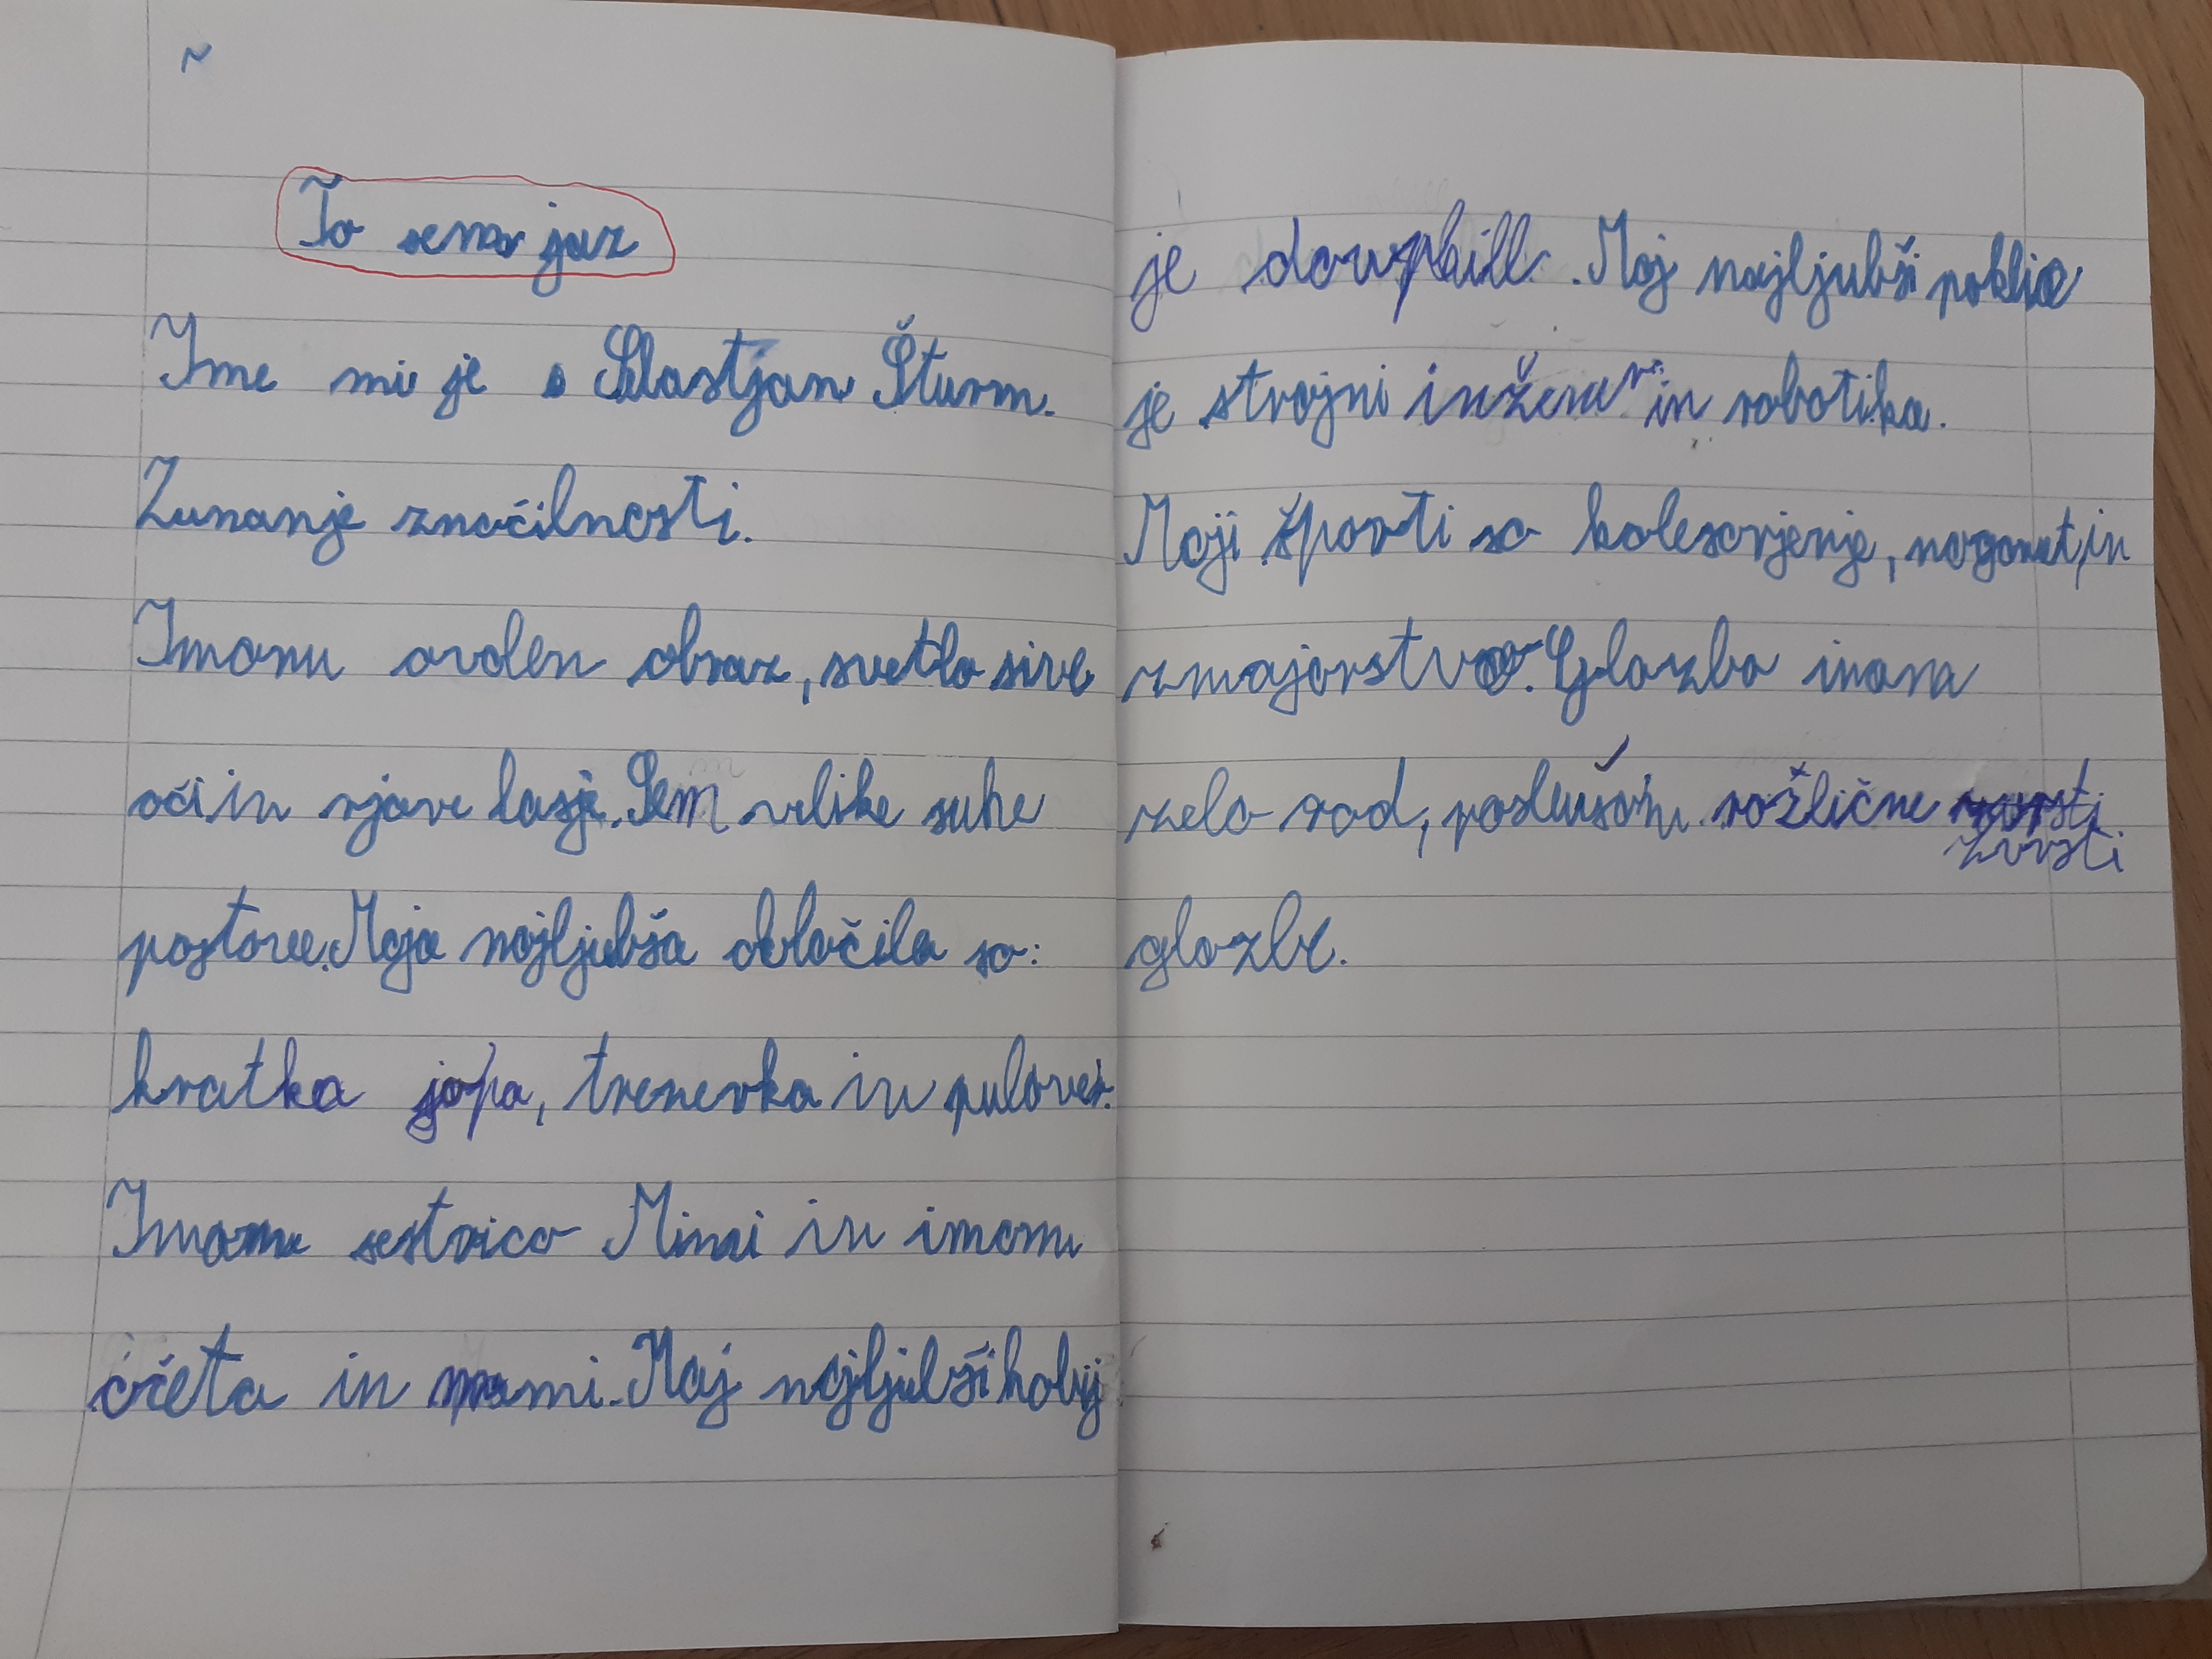 To sem jaz
Ime mi je Sebastjan Šturm.
Zunanje značilnosti.
Imam ovalen obraz, svetlo sive
oči in rjave lasje. Sem velike suhe
postave. Moja najljubša oblačila so:
kratka jopa, trenerka in pulover.
Imam sestrico Mimi in imam
očeta in mami. Moj najljubši hobij
je downhill. Moj najljubši poklic
je strojni inžener in robotika.
Moji športi so kolesarjenje, nogomet, in
zmajarstvo. Glazbo imam
zelo rad, poslušam različne
zvrsti
glazbe.